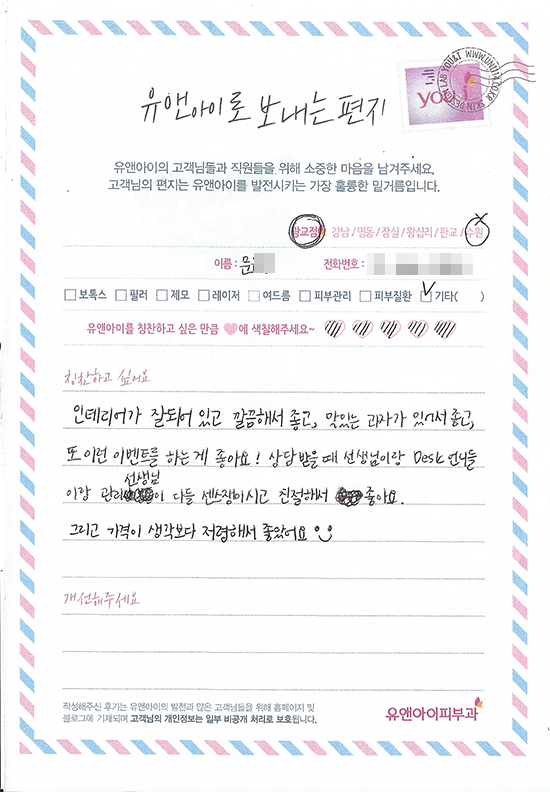 유앤아이로 보내는 편지
you.i
YOU&I WWW.UNI114.CO.KR SKIN DESIGN LAB
유앤아이의 고객님들과 직원들을 위해 소중한 마음을 남겨주세요.
고객님의 편지는 유앤아이를 발전시키는 가장 훌륭한 밑거름입니다.
광교점 / 강남 / 명동 / 잠실 / 왕십리 / 판교 / 수원
이름 : 문 전화번호 :
보톡스 필러 제모 레이저 여드름 피부관리 피부질환 기타( )
유앤아이를 칭찬하고 싶은 만큼 에 색칠해주세요~
칭찬하고 싶어요
인테리어가 잘되어 있고 깔끔해서 좋고, 맛있는 과자가 있어서 좋고,
또 이런 이벤트를 하는게 좋아요! 상담받을때 선생님이랑 Desk 언니들
이랑 관리선생님이 다들 센스쟁이시고 친절해서 좋아요.
그리고 가격이 생각보다 저렴해서 좋았어요
개선해주세요
작성해주신 후기는 유앤아이의 발전과 많은 고객님들을 위해 홈페이지 및
블로그에 기재되며 고객님의 개인정보는 일부 비공개 처리로 보호됩니다.
유앤아이피부과